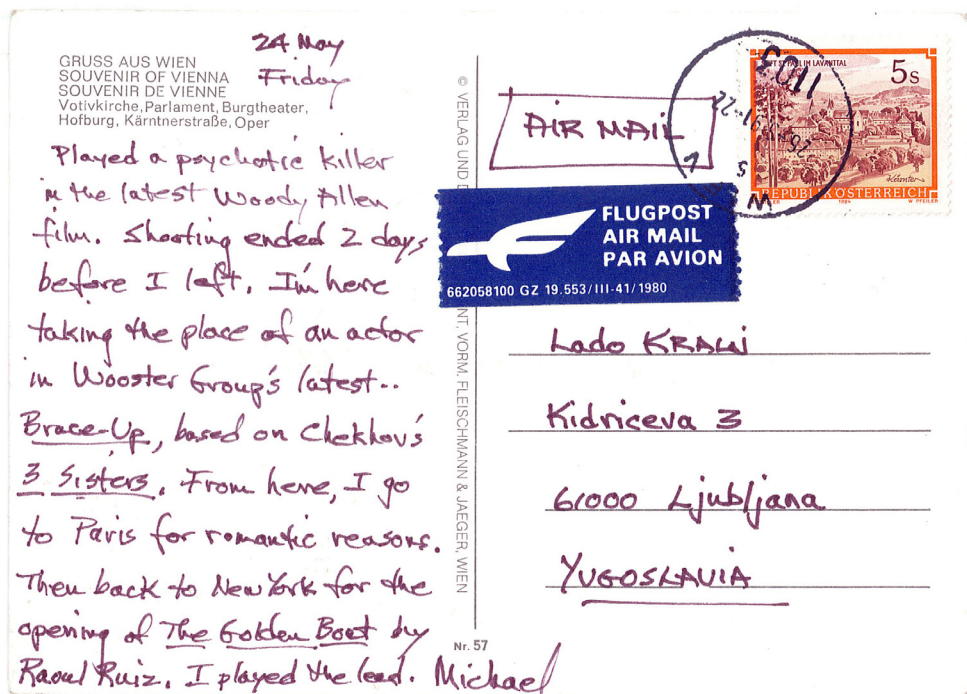 24 May
Friday
GRUSS AUS WIEN
SOUVENIR OF VIENNA
SOUVENIR DE VIENNE
Votivkirche, Parlament, Burgtheater,
Hofburg, Kärntnerstraße, Oper
Played a psychotic killer
in the latest Woody Allen
film. Shooting ended 2 days
before I left. I'm here
taking the place of an actor
in Wooster Group's latest..
Brace-Up, based on Chekhov's
3 Sisters. From here, I go
to Paris for romantic reasons.
Then back to New York for the
opening of The Golden Boat by
Raoul Ruiz. I played the lead. Michael
© VERLAG UND
NT, VORM. FLEISCHMANN & JAEGER, WIEN
Nr. 57
AIR MAIL
FLUGPOST
AIR MAIL
PAR AVION
662058100 GZ 19.553/III-41/1980
ST. PAUL IM LAVANTTAL
5s
Kärnten
REPUBLIK ÖSTERREICH
1984
W. PFEILER
1103
Lado KRALJ
Kidriceva 3
61000 Ljubljana
YUGOSLAVIA